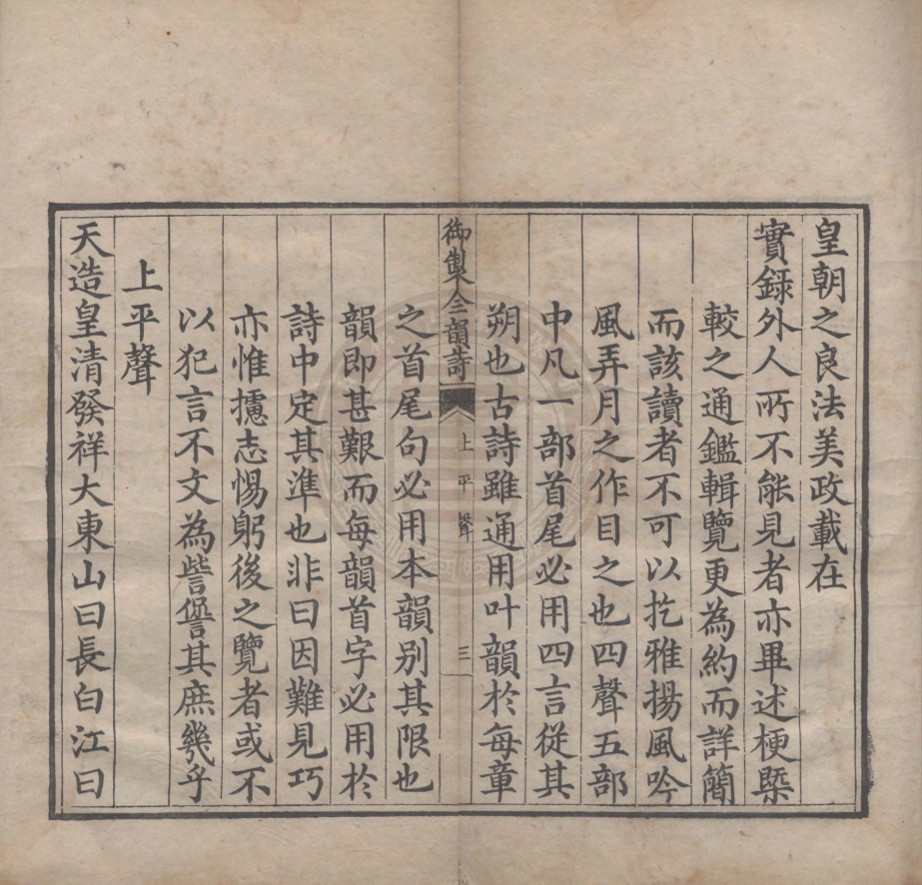 皇朝之良法美政載在
實錄外人所不能見者亦畢述梗槩
較之通鑑輯覽更為約而詳簡
而該讀者不可以扢雅揚風吟
風弄月之作目之也四聲五部
中凡一部首尾必用四言從其
朔也古詩雖通用叶韻於每章
御製全韻詩 上平聲 三
之首尾句必用本韻别其限也
韻即甚艱而每韻首字必用於
詩中定其準也非曰因難見巧
亦惟攄志惕躬後之覽者或不
以犯言不文為訾儅其庶幾乎
上平聲
天造皇清發祥大東山曰長白江曰